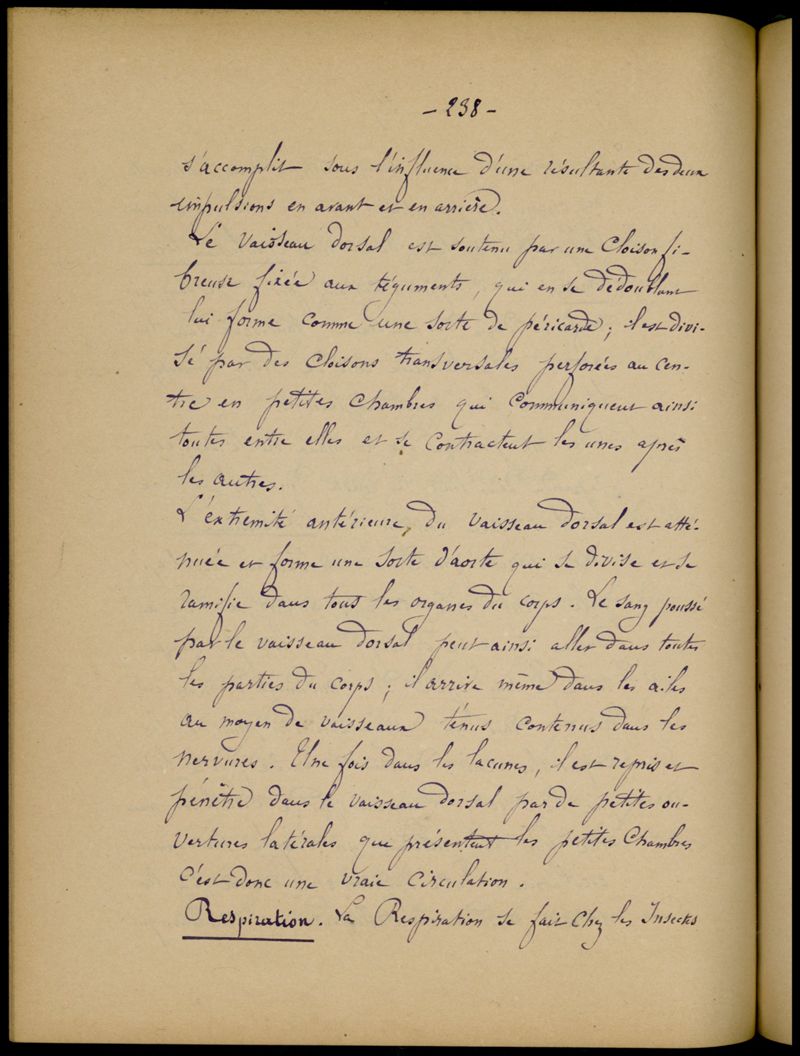 - 238 -
s'accomplit sous l'influence d'une résultante des deux
impulsions en avant et en arrière.
Le vaisseau dorsal est soutenu par une cloison fi-
breuse fixée aux téguments, qui en se dédoublant
lui forme comme une sorte de péricarde; il est divi-
sé par des cloisons transversales perforées au cen-
tre en petites chambres qui communiquent ainsi
toutes entre elles et se contractent les unes après
les autres.
L'extrémité antérieure, du vaisseau dorsal est atté-
nuée et forme une sorte d'aorte qui se divise et se
ramifie dans tous les organes du corps. Le sang poussé
par le vaisseau dorsal peut ainsi aller dans toutes
les parties du corps; il arrive même dans les ailes
au moyen de vaisseaux ténus contenus dans les
nervures. Une fois dans les lacunes, il est repris et
pénètre dans le vaisseau dorsal par de petites ou-
vertures latérales que présentent les petites chambres
c'est donc une vraie circulation.
Respiration. La Respiration se fait chez les Insectes